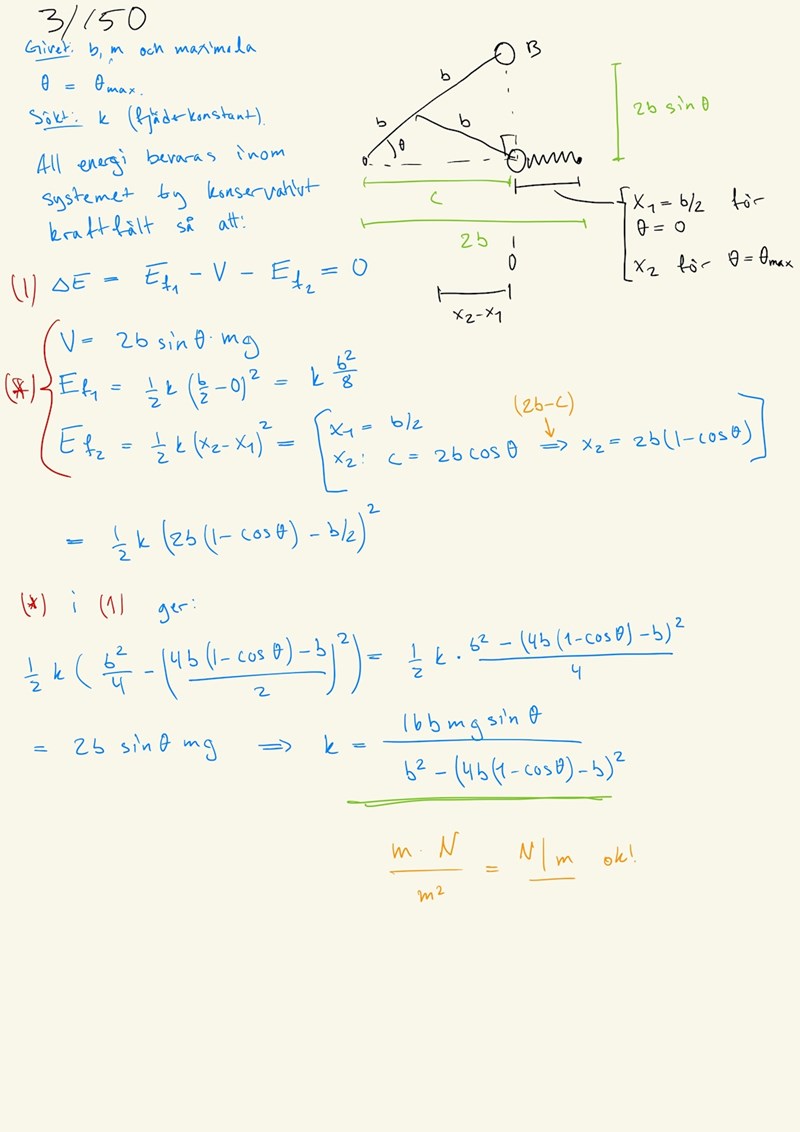 3/150
Givet: b, m och maximala
θ = θmax.
Sökt: k (fjäderkonstant).
All energi bevaras inom
systemet ty konservativt
kraftfält så att:
B
b
b
b
θ
2b sin θ
c
2b
0
x₂-x₁
x₁ = b/2 för
θ = 0
x₂ för θ = θmax
(1) ΔE = Ef₁ - V - Ef₂ = 0
(*)
V = 2b sin θ · mg
Ef₁ = 1/2 k (b/2 - 0)² = k b²/8
Ef₂ = 1/2 k (x₂-x₁)² = [x₁ = b/2
(2b-c)
x₂: c = 2b cos θ ⟹ x₂ = 2b(1-cos θ)]
= 1/2 k (2b(1-cos θ) - b/2)²
(*) i (1) ger:
1/2 k (b²/4 - (4b(1-cos θ)-b/2)²) = 1/2 k · b² - (4b(1-cos θ)-b)²/4
= 2b sin θ mg ⟹ k = 16b mg sin θ / b² - (4b(1-cos θ)-b)²
m · N / m² = N/m ok!